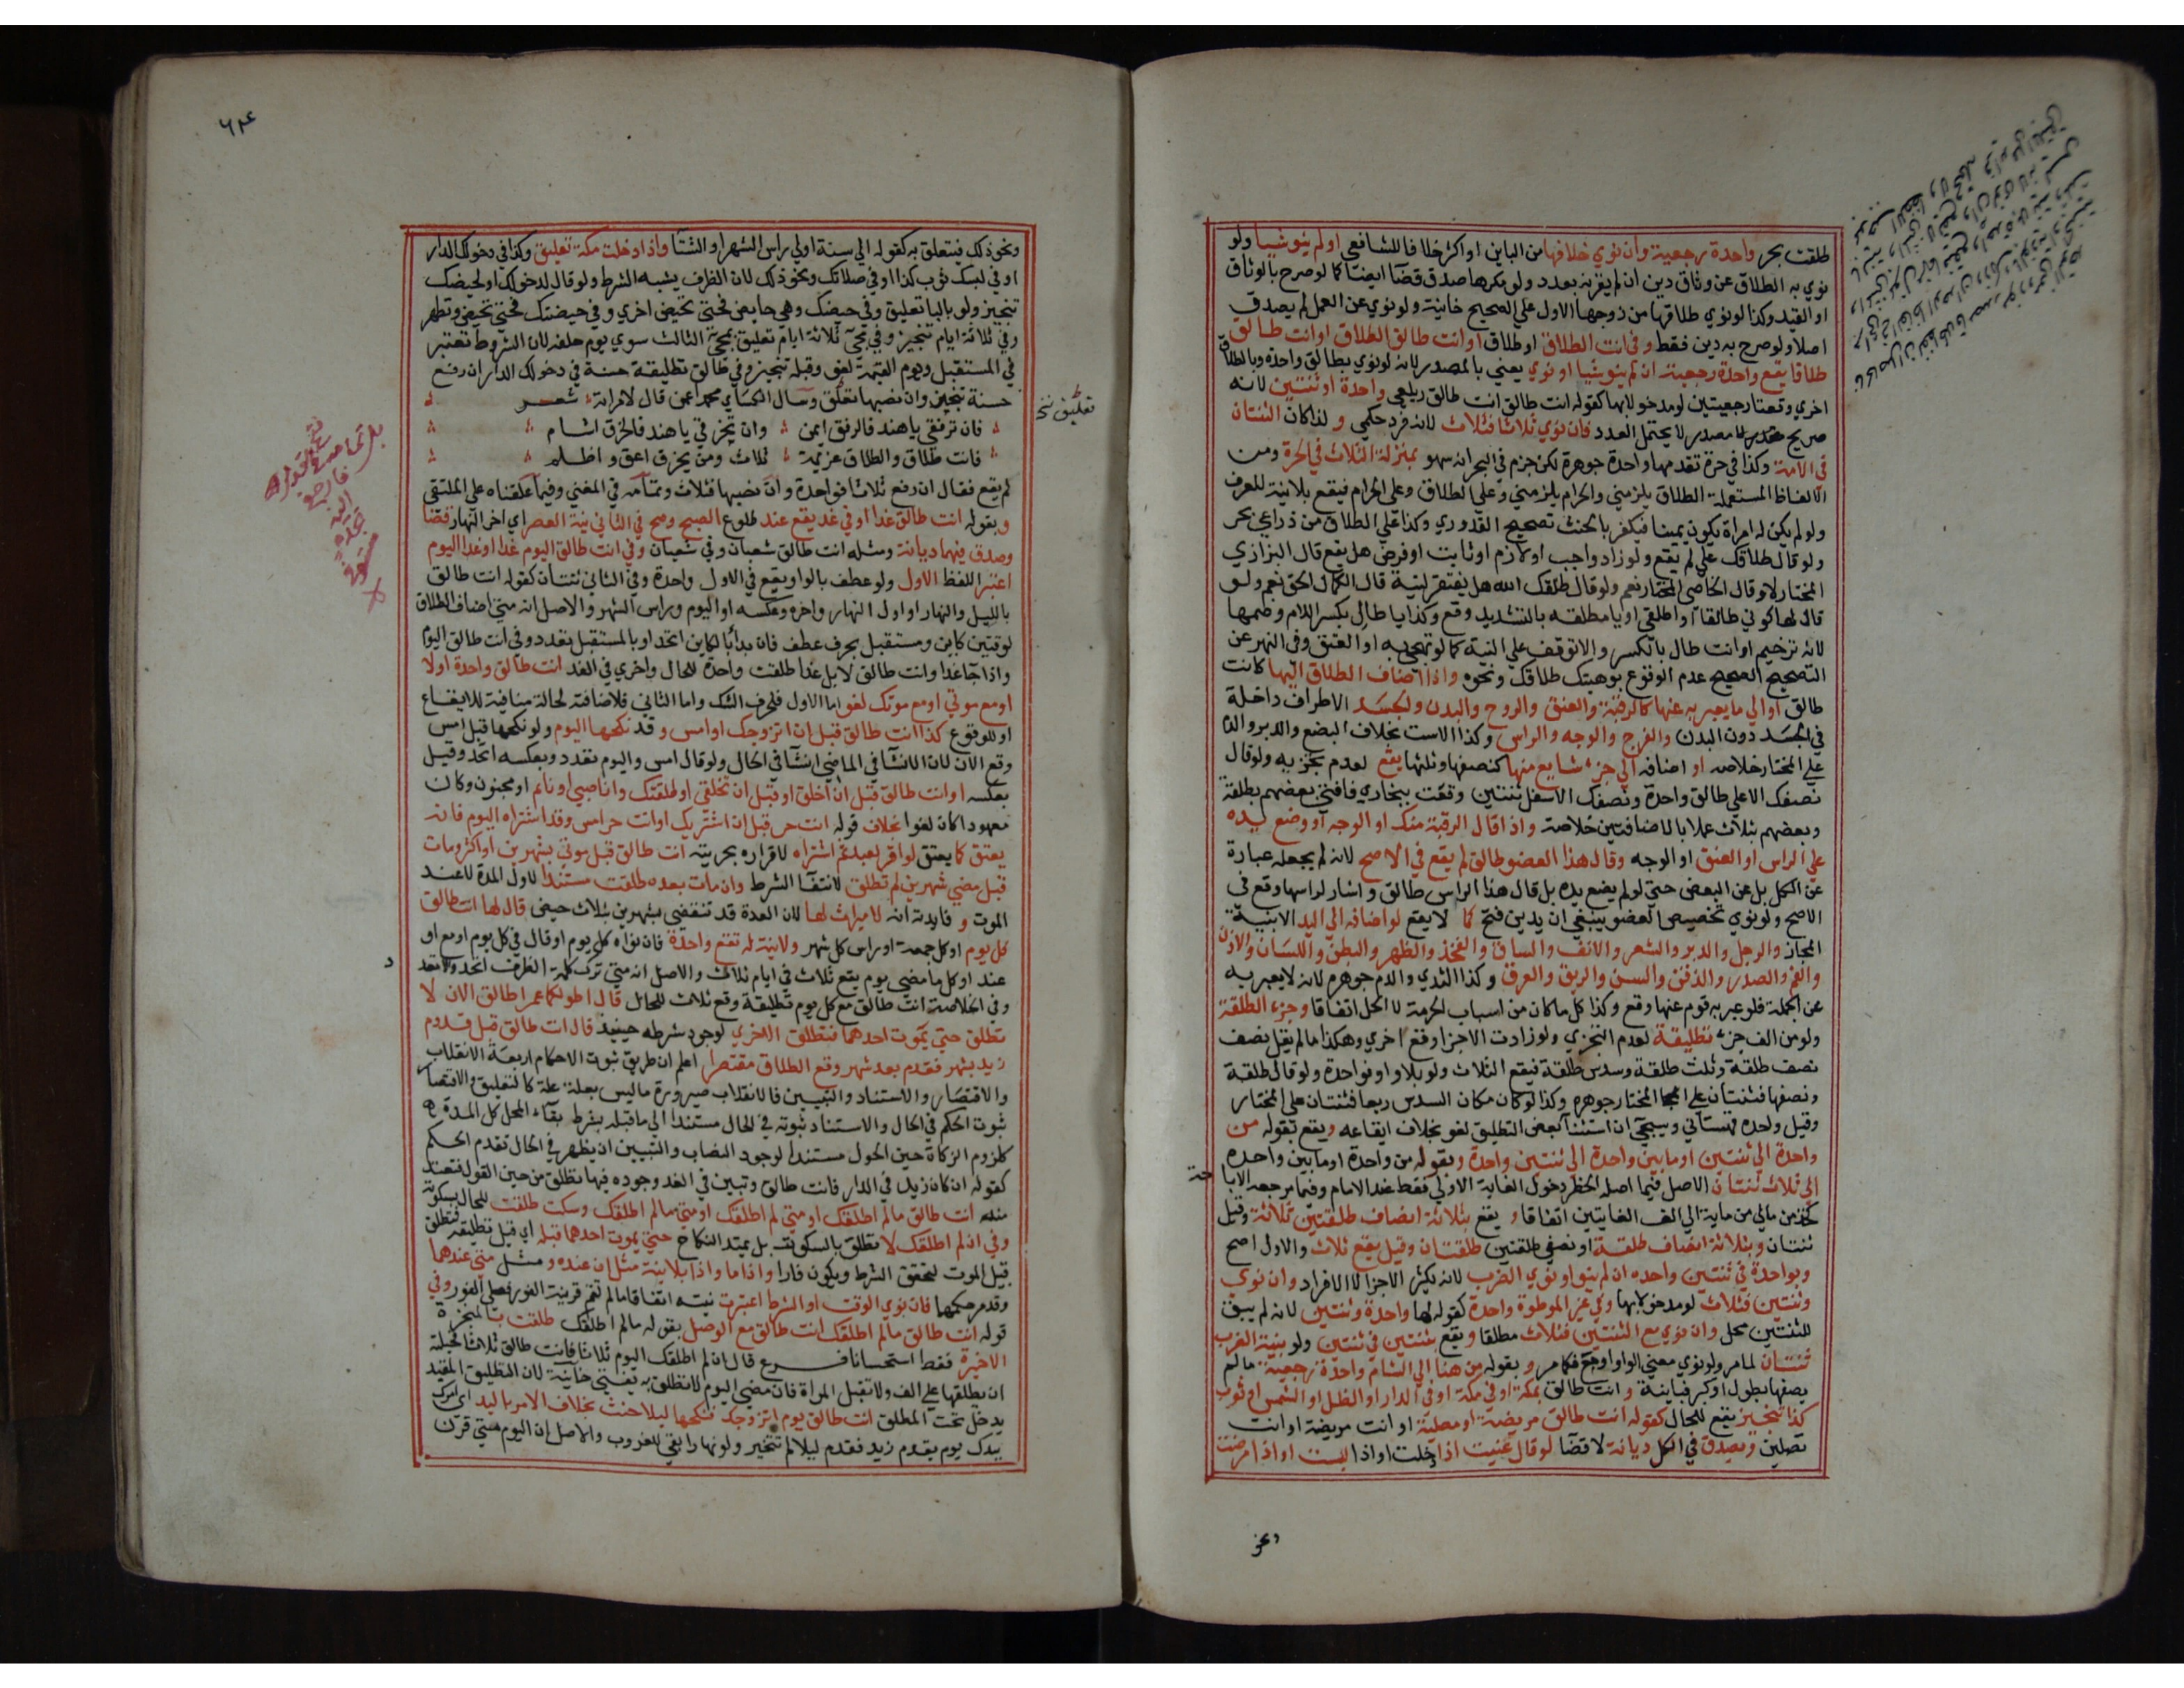 طلقت بحر واحدة رجعية وان نوي خلافها من الباين او اكثر خلافا للشافعي او لم ينو شيا ولو
نوي به الطلاق عن وثاق دين ان لم يقرنه بعدد ولو مكرها صدق قضا ايضا كما لو صرح بالوثاق
او القيد وكذا لو نوي طلاقها من زوجها الاول علي الصحيح خانية ولو نوي عن العمل لم يصدق
اصلا ولو صرح به دين فقط وفي انت الطلاق او طلاق او انت طالق الطلاق او انت طالق
طلاقا يقع واحدة رجعية ان لم ينو شيا او نوي يعني بالمصدر لانه لو نوي بطالق واحدة وبالطلاق
اخري وقعتا رجعيتين لو مدخولا بها كقوله انت طالق انت طالق زيلعي واحدة او ثنتين لانه
صريح مصدر لا يحتمل العدد فان نوي ثلاثا فثلاث لانه فرد حكمي ولذا كان الثنتان
في الامة وكذا في حرة تقدمها واحدة جوهرة لكن جزم في البحر انه سهو بمنزلة الثلاث في الحرة ومن
الالفاظ المستعملة الطلاق يلزمني والحرام يلزمني وعلي الطلاق وعلي الحرام فيقع بلا نية للعرف
ولو لم يكن له امراة يكون يمينا فيكفر بالحنث تصحيح القدوري وكذا علي الطلاق من ذراعي بحر
ولو قال طلاقك علي لم يقع ولو زاد واجب او لازم او ثابت او فرض هل يقع قال البزازي
المختار لا وقال الخاصي المختار نعم ولو قال طلقك الله هل يفتقر لنية قال الكمال الحق نعم ولو
قال لها كوني طالقا او اطلقي او يا مطلقه بالتشديد وقع وكذا يا طال بكسر اللام وضمها
لانه ترخيم او انت طال بالكسر والا توقف علي النية كما لو تهجي به او العتق وفي النهر عن
التصحيح الصحيح عدم الوقوع بوهبتك طلاقك ونحوه واذا اضاف الطلاق اليها كانت
طالق او الي ما يعبر به عنها كالرقبة والعنق والروح والبدن والجسد الاطراف داخلة
في الجسد دون البدن والفرج والوجه والراس وكذا الاست بخلاف البضع والدبر والدم
علي المختار خلاصه او اضافه الي جزء شايع منها كنصفها وثلثها يقع لعدم تجزيه ولو قال
نصفك الاعلي طالق واحدة ونصفك الاسفل ثنتين وقعت ببخاري فافتي بعضهم بطلقة
وبعضهم بثلاث عملا بالاضافتين خلاصة واذا قال الرقبة منك او الوجه او وضع يده
علي الراس او العنق او الوجه وقال هذا العضو طالق لم يقع في الاصح لانه لم يجعله عبارة
عن الكل بل عن البعض حتي لو لم يضع يده بل قال هذا الراس طالق واشار لراسها وقع في
الاصح ولو نوي تخصيص العضو ينبغي ان يدين فتح كما لا يقع لو اضافه الي اليد الا بنية
المجاز والرجل والدبر والشعر والانف والساق والفخذ والظهر والبطن واللسان والاذن
والفم والصدر والذقن والسن والريق والعرق وكذا الثدي والدم جوهره لانه لا يعبر به
عن الجملة فلو عبر به قوم عنها وقع وكذا كل ما كان من اسباب الحرمة لا الحل اتفاقا وجزء الطلقة
ولو من الف جزء تطليقة لعدم التجزي ولو زادت الاجزا وقع اخري وهكذا ما لم يقل نصف
نصف طلقة وثلث طلقة وسدس طلقة فيقع الثلاث ولو بلا واو فواحدة ولو قال طلقة
ونصفها فثنتان علي المختار جوهره وكذا لو كان مكان السدس ربعا فثنتان علي المختار
وقيل واحده قهستاني وسيجي ان استثنا بعض التطليق لغو بخلاف ايقاعه ويقع بقوله من
واحدة الي ثنتين او ما بين واحدة الي ثنتين واحدة وبقوله من واحدة او ما بين واحده
الي ثلاث ثنتان الاصل فيما اصله الحظر دخول الغاية الاولي فقط عند الامام وفيما مرجعه الابا
حة
كخذ من مالي من ماية الي الف الغايتين اتفاقا ويقع بثلاثة انصاف طلقتين ثلاثة وقيل
ثنتان وبثلاثة انصاف طلقة او نصفي طلقتين طلقتان وقيل يقع ثلاث والاول اصح
وبواحدة في ثنتين واحده ان لم ينو او نوي الضرب لانه يكثر الاجزا لا الافراد وان نوي
وثنتين فثلاث لو مدخولا بها وفي غير الموطوة واحدة كقوله لها واحدة وثنتين لانه لم يبق
للثنتين محل وان نوي مع الثنتين فثلاث مطلقا ويقع بثنتين في ثنتين ولو بنية الضرب
ثنتان لما مر ولو نوي معني الواو او مع فكما مر وبقوله من هنا الي الشام واحدة رجعية ما لم
يصفها بطول او كبر فباينة وانت طالق بمكة او في مكة او في الدار او الظل او الشمس او ثوب
كذا تنجيز يقع للحال كقوله انت طالق مريضة او مصلية او انت مريضة او انت
تصلين ويصدق في الكل ديانة لا قضا لو قال عنيت اذا دخلت او اذا لبست او اذا مرضت
ونحو
٦٢٤
ونحو ذلك فيتعلق به كقوله الي سنة او لي راس الشهر او الشتا واذا دخلت مكة تعليق وكذا في دخولك الدار
او في لبسك ثوب كذا او في صلاتك ونحو ذلك لان الظرف يشبه الشرط ولو قال لدخولك او لحيضك
تنجيز ولو بالبا تعليق وفي حيضك وهي حايض فحتي تحيض اخري وفي حيضتك فحتي تحيض وتطهر
وفي ثلاثة ايام تنجيز وفي مجي ثلاثة ايام تعليق بمجي الثالث سوي يوم حلفه لان الشروط تعتبر
في المستقبل ويوم القيمة لغو وقبله تنجيز وفي طالق تطليقة حسنة في دخولك الدار ان رفع
حسنة تنجيز وان نصبها تعلق وسال الكسائي محمدا عمن قال لامراته شعر
تعليق نخ
فان ترفقي يا هند فالرفق ايمن وان تخرقي يا هند فالخرق اشام
فانت طلاق والطلاق عزيمة ثلاث ومن يخرق اعق واظلم
كم يقع فقال ان رفع ثلاثا فواحدة وان نصبها فثلاث وتمامه في المغني وفيما علقناه علي الملتقي
وبقوله انت طالق غدا او في غد يقع عند طلوع الصبح وصح في الثاني نية العصر اي اخر النهار قضا
وصدق فيهما ديانة ومثله انت طالق شعبان وفي شعبان وفي انت طالق اليوم غدا او غدا اليوم
اعتبر اللفظ الاول ولو عطف بالواو يقع في الاول واحدة وفي الثاني ثنتان كقوله انت طالق
بالليل والنهار او اول النهار واخره وعكسه او اليوم وراس الشهر والاصل انه متي اضاف الطلاق
لوقتين كاين ومستقبل بحرف عطف فان بدا بالكاين اتحد او بالمستقبل تعدد وفي انت طالق اليوم
واذا جا غدا وانت طالق لا بل غدا طلقت واحدة للحال واخري في الغد انت طالق واحدة اولا
او مع موتي او مع موتك لغو اما الاول فلحرف الشك واما الثاني فلاضافته لحالة منافية للايقاع
او للوقوع كذا انت طالق قبل ان اتزوجك او امس وقد نكحها اليوم ولو نكحها قبل امس
وقع الان لان الانشا في الماضي انشا في الحال ولو قال امس واليوم تعدد وبعكسه اتحد وقيل
بعكسه او انت طالق قبل ان اخلق او قبل ان تخلقي او طلقتك وانا صبي او نايم او مجنون وكان
معهودا كان لغوا بخلاف قوله انت حر قبل ان اشتريك او انت حر امس وقد اشتراه اليوم فانه
يعتق كما يعتق لو اقر لعبد ثم اشتراه لاقراره بحريته انت طالق قبل موتي بشهرين او اكثر ومات
قبل مضي شهرين لم تطلق لانتفا الشرط وان مات بعده طلقت مستندا لاول المدة لا عند
الموت وفايدته انه لا ميراث لها لان العدة قد تنقضي بشهرين بثلاث حيض قال لها انت طالق
كل يوم او كل جمعة او راس كل شهر ولا نية له تقع واحدة فان نواه كل يوم او قال في كل يوم او مع او
عند او كل ما مضي يوم يقع ثلاث في ايام ثلاث والاصل انه متي ترك كلمة الظرف اتحد والا تعدد
وفي الخلاصة انت طالق مع كل يوم تطليقة وقع ثلاث للحال قال اطولكما عمرا طالق الان لا
تطلق حتي يموت احدهما فتطلق الاخري لوجود شرطه حينيذ قال انت طالق قبل قدوم
زيد بشهر فقدم بعد شهر وقع الطلاق مقتصرا اعلم ان طريق ثبوت الاحكام اربعة الانقلاب
والاقتصار والاستناد والتبيين فالانقلاب صيرورة ما ليس بعلة علة كالتعليق والاقتصار
ثبوت الحكم في الحال والاستناد ثبوته في الحال مستندا الي ما قبله بشرط بقاء المحل كل المدة
كلزوم الزكاة حين الحول مستندا لوجود النصاب والتبيين ان يظهر في الحال تقدم الحكم
كقوله ان كان زيد في الدار فانت طالق وتبين في الغد وجوده فيها تطلق من حين القول فتعتد
منه انت طالق ما لم اطلقك او متي لم اطلقك او متي ما لم اطلقك وسكت طلقت للحال بسكوته
وفي ان لم اطلقك لا تطلق بالسكوت بل يمتد النكاح حتي يموت احدهما قبله اي قبل تطليقه فتطلق
قبيل الموت لتحقق الشرط ويكون فارا واذا ما واذا بلا نية مثل ان عنده ومثل متي عندهما
وقد مر حكمهما فان نوي الوقت او الشرط اعتبرت نيته اتفاقا ما لم تقم قرينة الفور فعلي الفور وفي
قوله انت طالق ما لم اطلقك انت طالق مع الوصل بقوله ما لم اطلقك طلقت بالمنجزة
الاخيرة فقط استحسانا فرع قال ان لم اطلقك اليوم ثلاثا فانت طالق ثلاثا فحيلته
ان يطلقها علي الف ولا تقبل المراة فان مضي اليوم لا تطلق به يفتي خانية لان التطليق المقيد
يدخل تحت المطلق انت طالق يوم اتزوجك فنكحها ليلا حنث بخلاف الامر باليد اي امرك
بيدك يوم يقدم زيد فقدم ليلا لم تتخير ولو نهارا بقي للغروب والاصل ان اليوم متي قرن